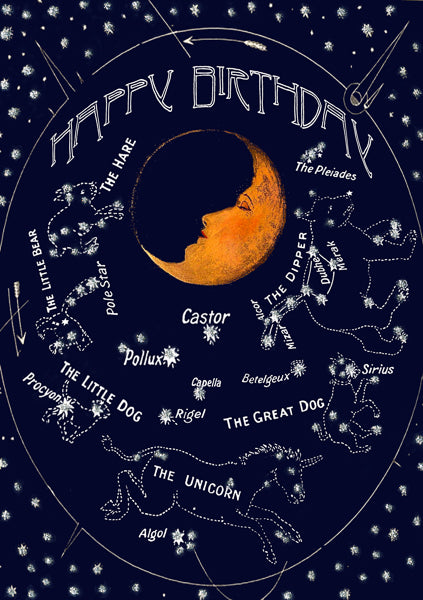 HAPPY BIRTHDAY
THE HARE
The Pleiades
THE LITTLE BEAR
Pole Star
THE DIPPER
Dubhe
Merak
Mizar
Alcor
Castor
Pollux
Capella
Betelgeux
Sirius
THE LITTLE DOG
Procyon
Rigel
THE GREAT DOG
THE UNICORN
Algol